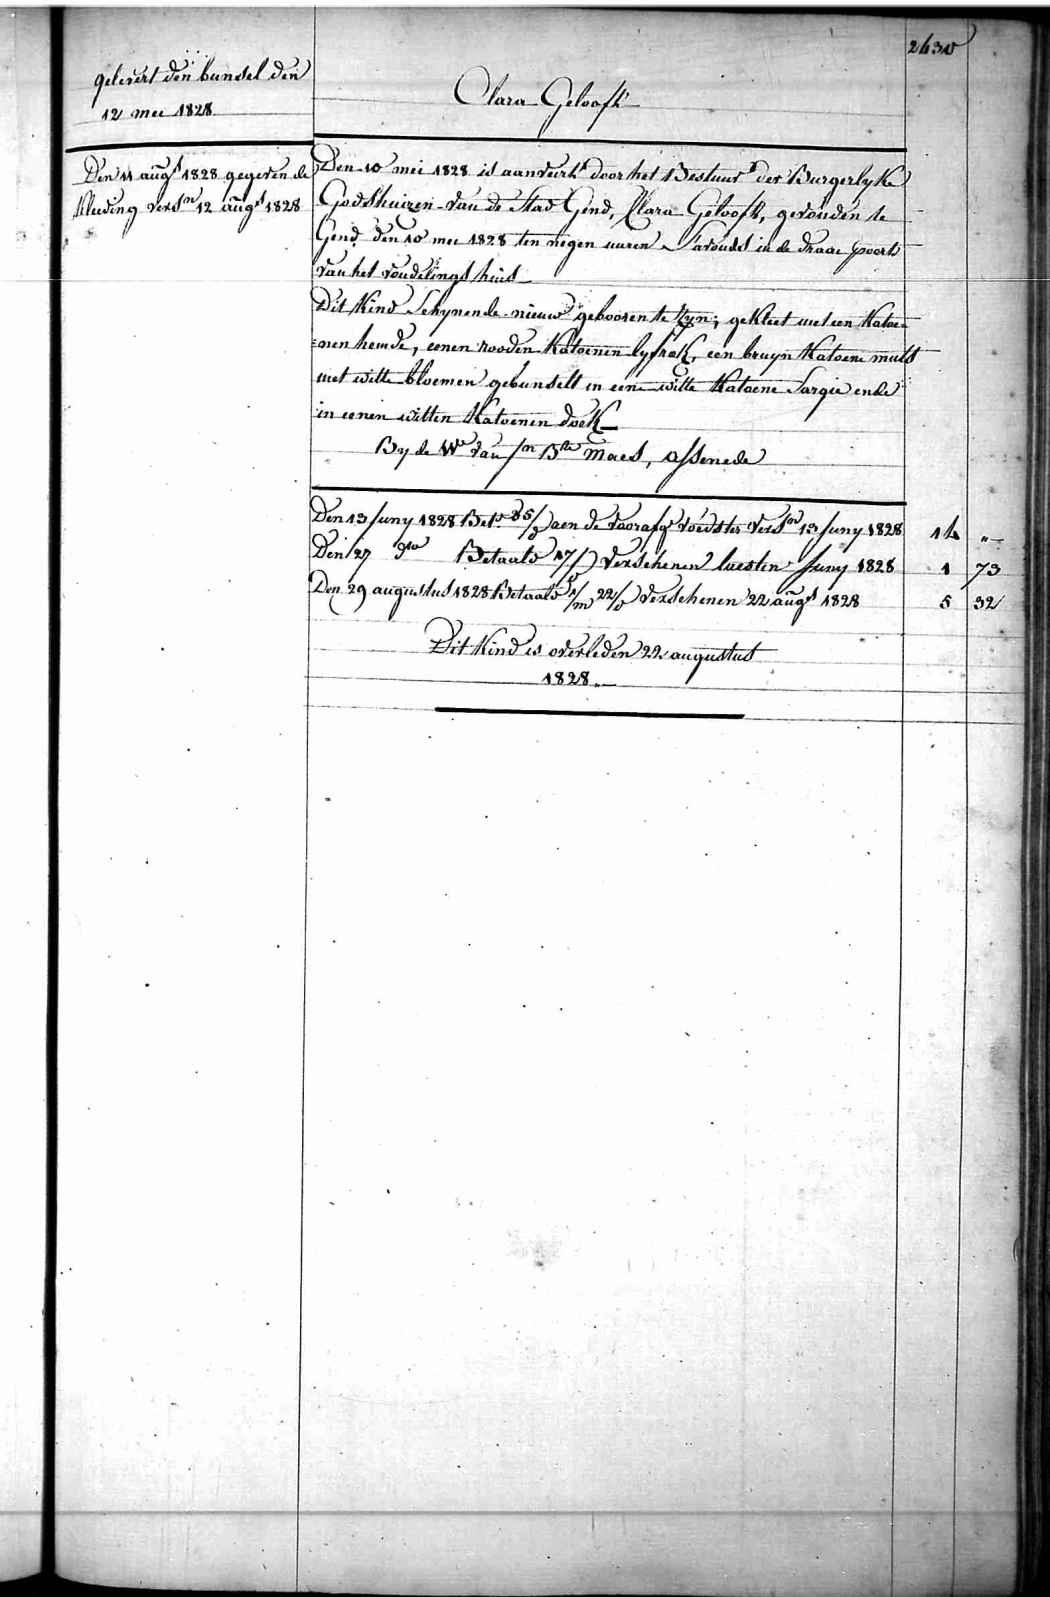 2630
gelevert den bunsel den
12 mei 1828
Clara Geloofs
Den 11 augs 1828 gegeven de
kleeding versn 12 augs 1828
Den 10 mei 1828 is aanveert door het Bestuur der Burgerlyke
Godshuizen van de Stad Gend, Clara Geloofs, gevonden te
Gend den 10 mei 1828 ten negen uuren Savonds in de draae poort
van het vondelings huis
Dit kind Schynende nieuw geboosen te zyn; gekleet met een katoe=
=nen hemde, eenen rooden katoenen lyfrok, een bruyn katoene muts
met witte bloemen gebunselt in eene witte katoene Sargie ende
in eenen witten katoenen doek
By de We van Jn Bte Maes, assenede
Den 13 Juny 1828 Bet 35/d aen de voorafge voedster versn 13 Juny 1828 14 "
Den 27 dto Betaald 17/d verschenen laesten Juny 1828 1 73
Den 29 augustus 1828 Betaald 1/m 22/d verschenen 22 augs 1828 5 32
Dit kind is overleden 22 augustus
1828